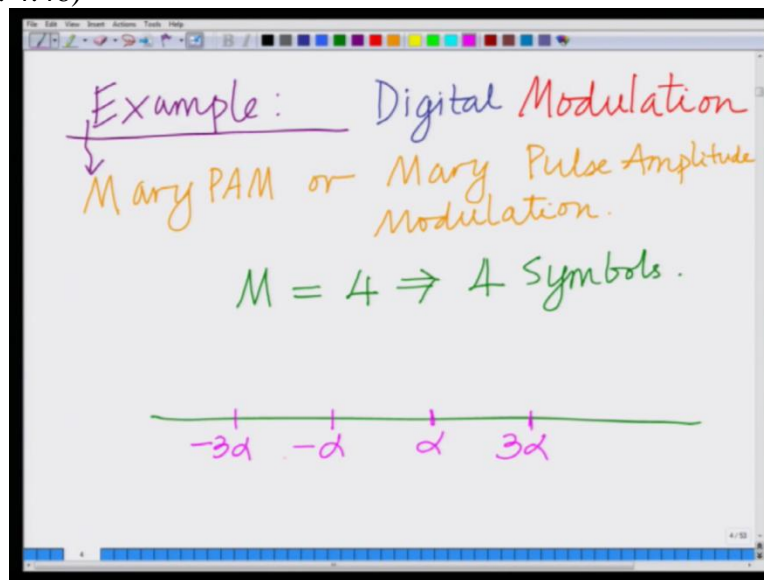 File Edit View Insert Actions Tools Help
Example: Digital Modulation
Mary PAM or Mary Pulse Amplitude
Modulation.
M = 4 ⇒ 4 Symbols.
-3α -α α 3α
4/53
4